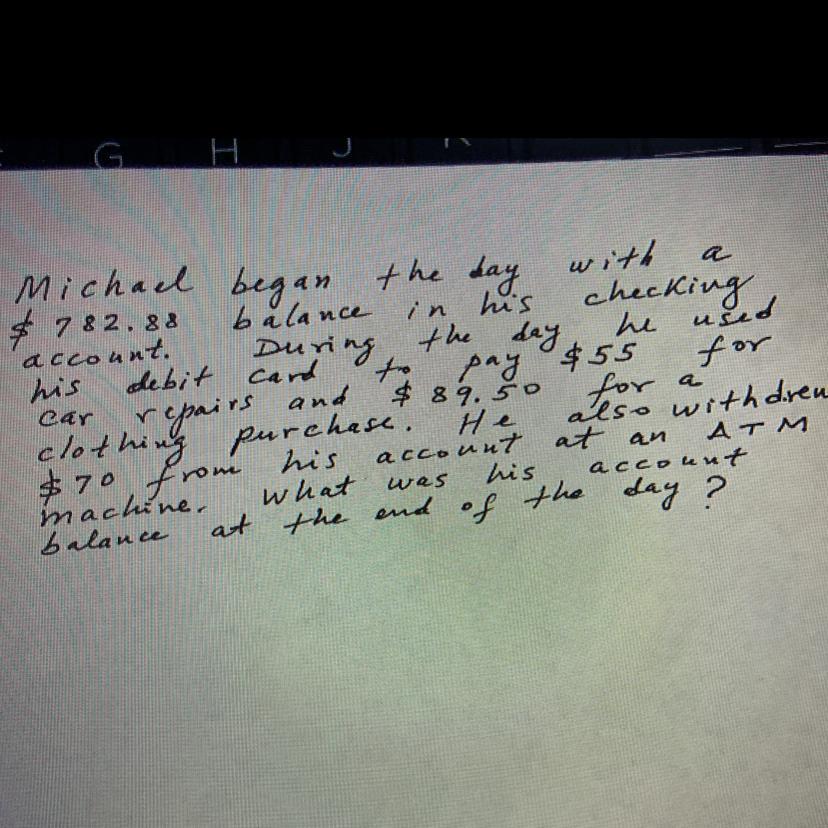 G H J
Michael began the day with a
$ 782.88 balance in his checking
account. During the day he used
his debit card to pay $55 for
car repairs and $ 89.50 for a
clothing purchase. He also withdrew
$70 from his account at an ATM
machine. What was his account
balance at the end of the day ?